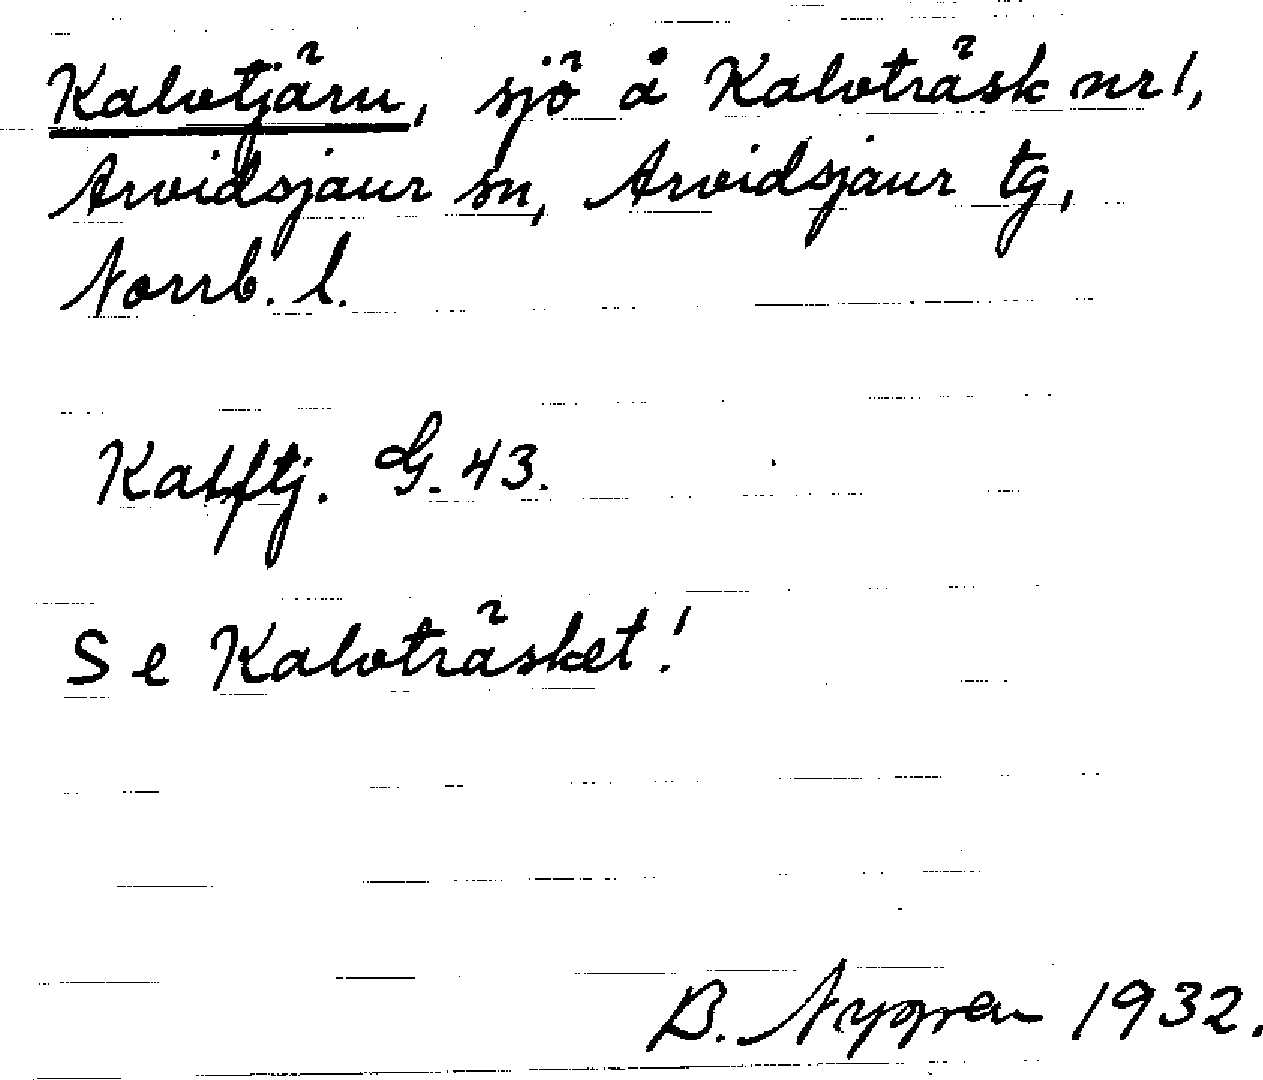 Kalvtjärn, sjö å Kalvträsk nr 1,
Arvidsjaur sn, Arvidsjaur tg,
Norrb. l.
Kalftj. G. 43.
Se Kalvträsket!
B. Nygren 1932.